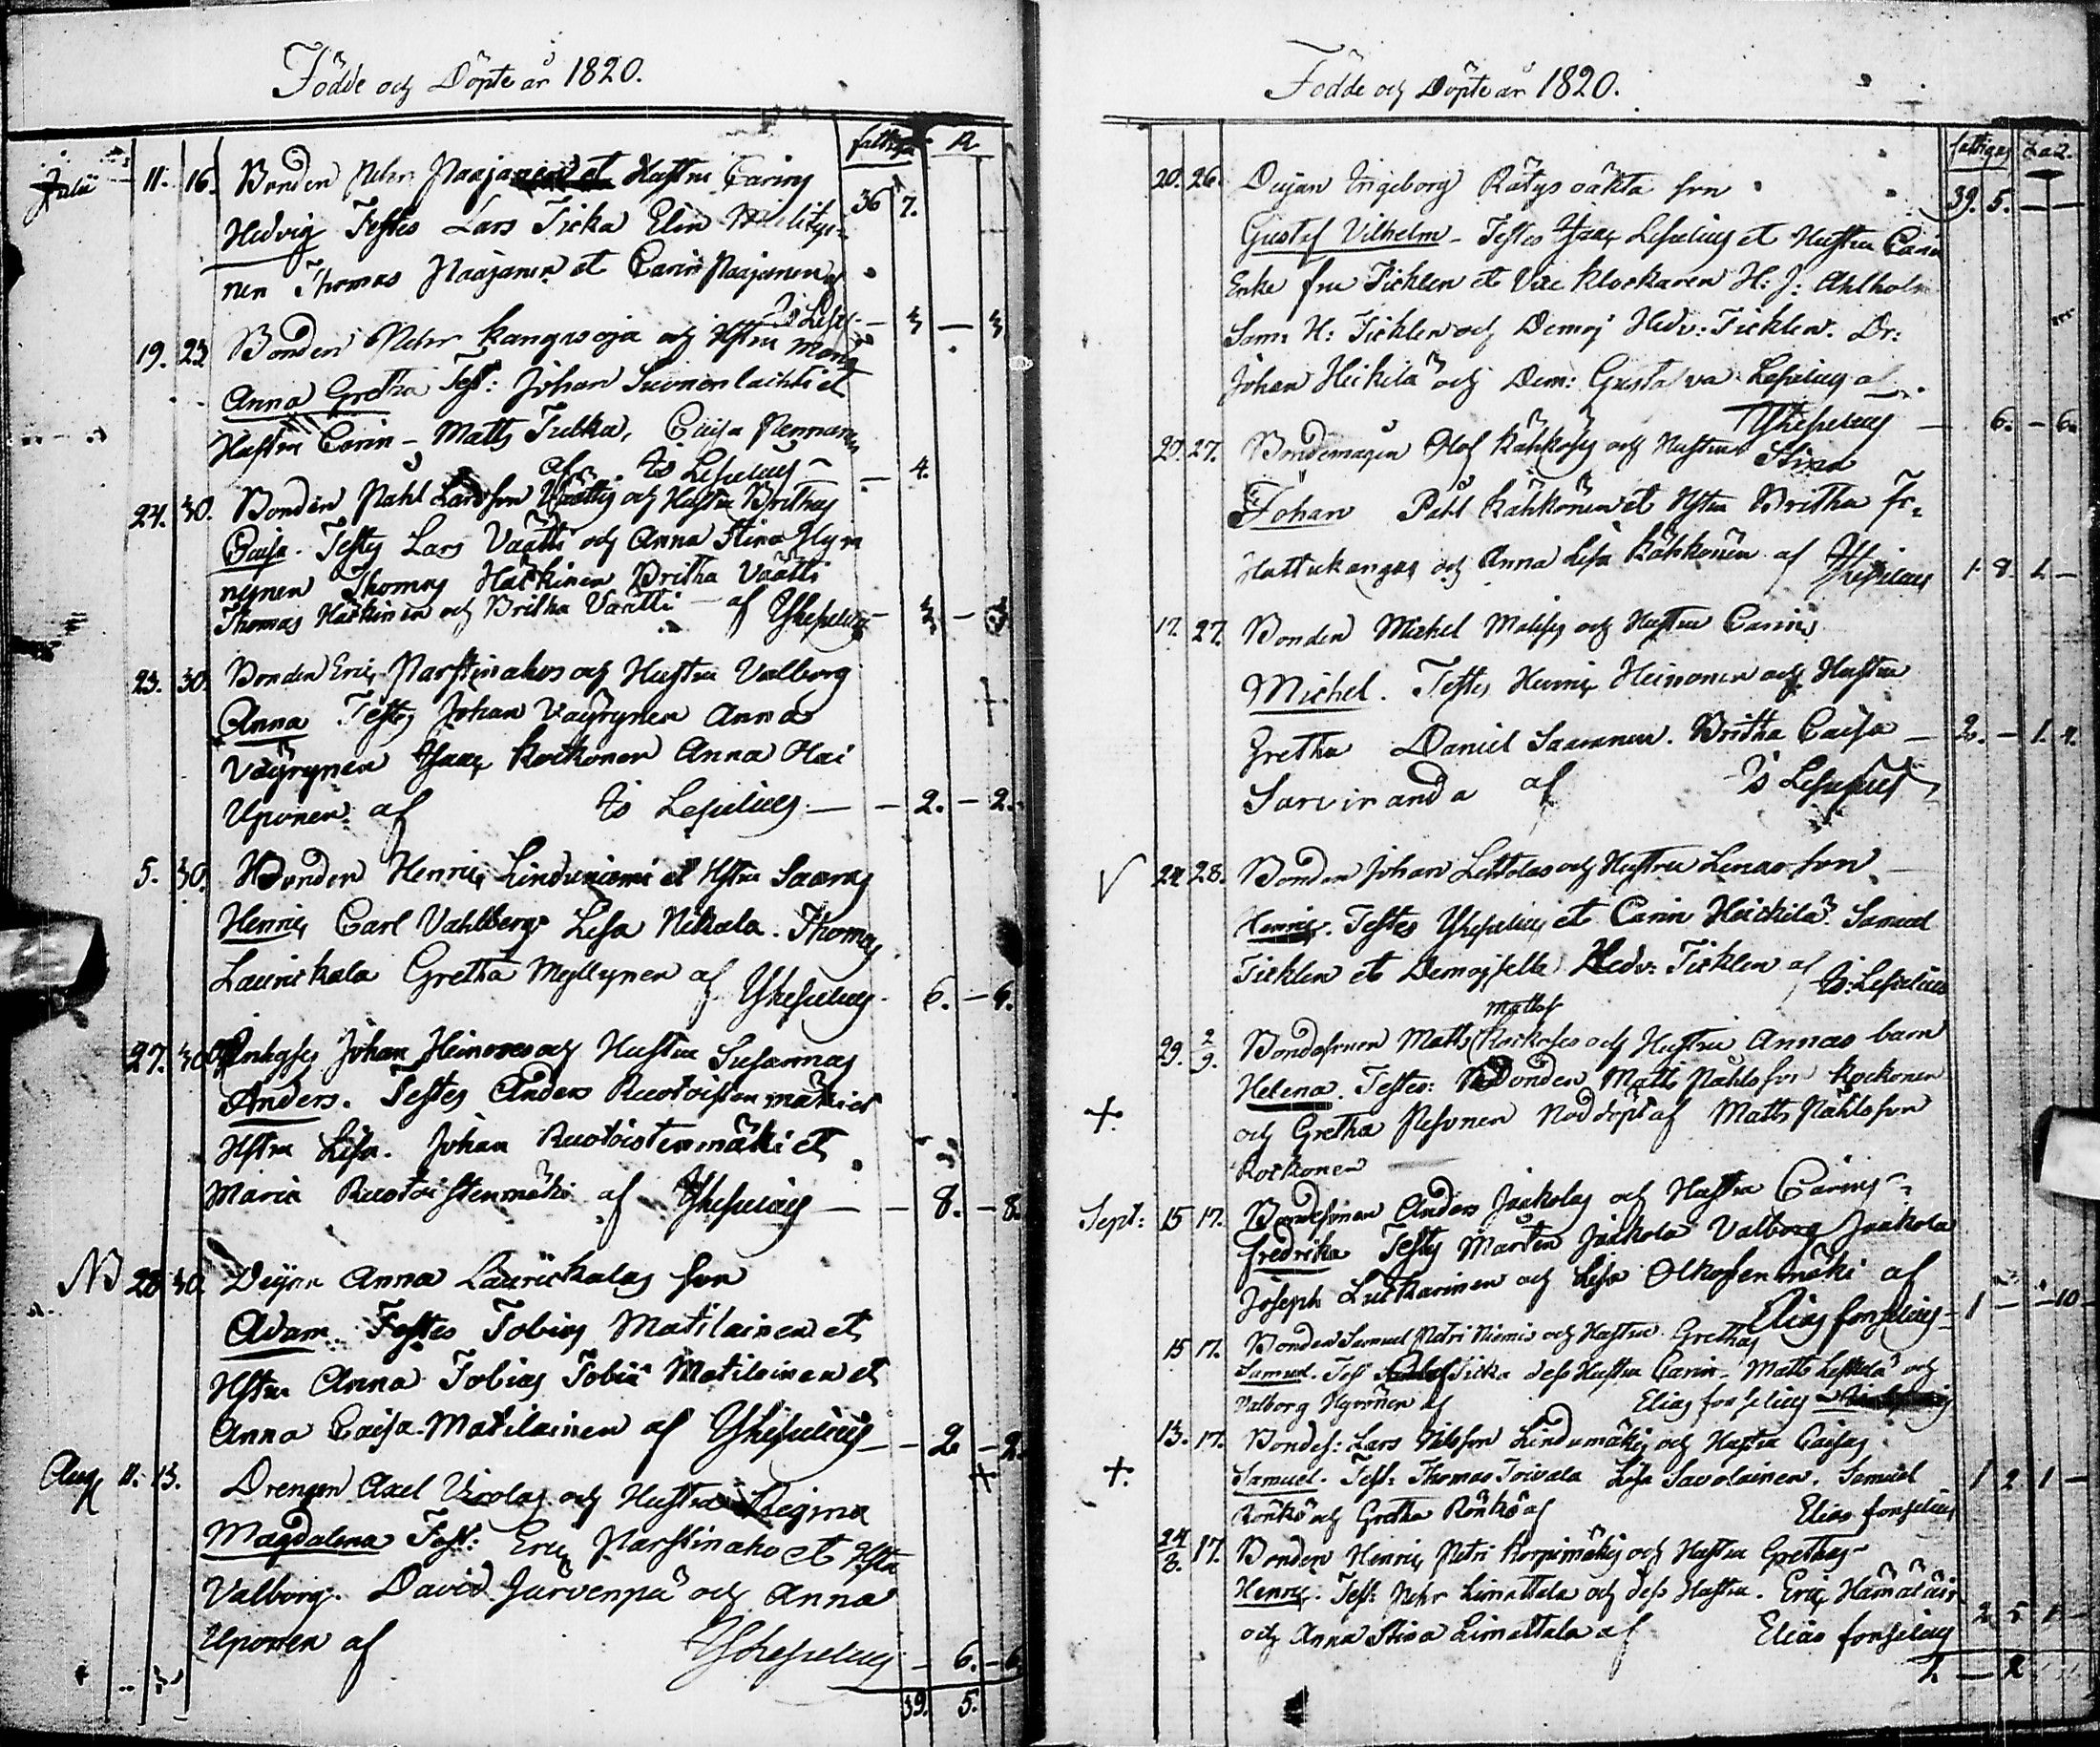 Födde och Döpte år 1820.
fattiga R
Julii 11. 16. Bonden Petter Paajanen et Hustru Carins
36 7.
Hedvig Testes Lars Ticka Elin
nen Thomas Paajanen et Carin Paajanen af
Is Les
19. 23 Bonden Pehr Kangasoja och Hstru
Anna Gretha Test: Johan Suonenlachti et
Hustru Carin - Matts Tulka, Caisa Pennanen
af Is Leselius 4.
24. 30. Bonden Pahl LarssonVäätis och Hustru Brithas
Caisa. Testes Lars Väätti och Anna Stina Hyn
nynen Thomas Häckinen Britha Väätti
Thomas Häckinen och Britha Väätti af YLeselius
23. 30. Bonden Eric Parstinahos och Hustru Valborg
Anna Testes Johan Väyrynen Anna
Väyrynen Isaac Kockonen Anna Hai
Uponen af Is Leselius 2. 2.
5. 30. Bonden Henric Linduniemi et Hstru Saaras
Henric Carl Vahlberg Lisa Nikula. Thomas
Laurickala Gretha Myllynen af YLeselius 6. 6.
27. 30. Johan Heinoses och Hustru Susannas
Anders. Testes Anders Ruotoistenmäki et
Hstru Lisa. Johan Ruotoistenmäki et
Maria Ruotoistenmäki af YLeselius 8. 8.
NB 28 30. Deijan Anna Laurickalas son
Adam. Testes Tobias Matilainen et
Hstru Anna Tobias Tobia Matilainen et
Anna Caisa Matilainen af YLeselius 2 2.
Aug 11. 13. Drengen Axel Virolas och Hustru Regina
Magdalena Test: Eric Parstinaho et Hstru
Valborg. David Jurvenpä och Anna
Uponen af YLeselius 6. 6
39. 5.
Födde och Döpte år 1820.
fattigas
20. 26. Deijan Ingeborg Rätys oäkta son
39. 5.
Gustaf Vilhelm - Testes Isaac Leselius et Hustru Carin
Enke fru Ticklen et Vice Klockaren H: J: Ahlholm
Sam: H: Ticklen och Demois Hedv: Ticklen. Dr:
Johan Heickilä och Dem: Gustafva Leselius af
YLeselius 6. 6.
20. 27. Bondemågen Olof Kähkösis och Hustru Stina
Johan Pahl Kähkönen et Hstru Britha
Hattukangas och Anna Lisa Kähkönen af YLeselius 1 8. 1. -
17. 27. Bonden Michel och Hustru Carins
Michel. Testes Henric Heinonen och Hustru
Gretha Daniel Saarinen. Britha Caisa 2. 1. 4.
Sarviranda af Is Leselius
V 24 28. Bonden Johan Lehtolas och Hustru Lenas son
Henric. Testes YLeselius et Carin Heickilä. Samuel
Ticklen et Demoiselle Hedv: Ticklen af Is: Leselius
Mattss
29. 2/9. Bondesonen Matts Kockoses och Hustru Annas barn
Helena. Testes: Bonden Matts Påhlsson Kockonen
+ och Gretha Pesonen Nöddöpt af Matts Påhlsson
Kockonen
Sept: 15 17. Bondesonen Anders Jaakolas och Hustru Carins
Fredrika Testes Mårten Jaakola Valborg Jaakola
Joseph Luckarinen och Lisa Olkosenmäki af
Elias forselius 1 - - 10
15 17. Bonden Samuel Petri Niemis och Hustru Grethas
Samuel. Test Ticka dess Hustru Carin. Matts Leskelä och
Valborg Hyvönen af Elias forselius
13. 17. Bondes: Lars Nilsson Lindumäkis och Hustru Caisas
+ Samuel. Test: Thomas Toivala Lisa Savolainen. Samuel 1 2 1 -
Rönkö och Gretha Rönkö af Elias forselius
24/8. 17. Bonden Henric Petri Korpimäkis och Hustru Grethas
Henric. Test: Pehr Limattala och dess Hustru. Eric Hämäläin
och Anna Stina Limattala af Elias forselius 2 5 1 -